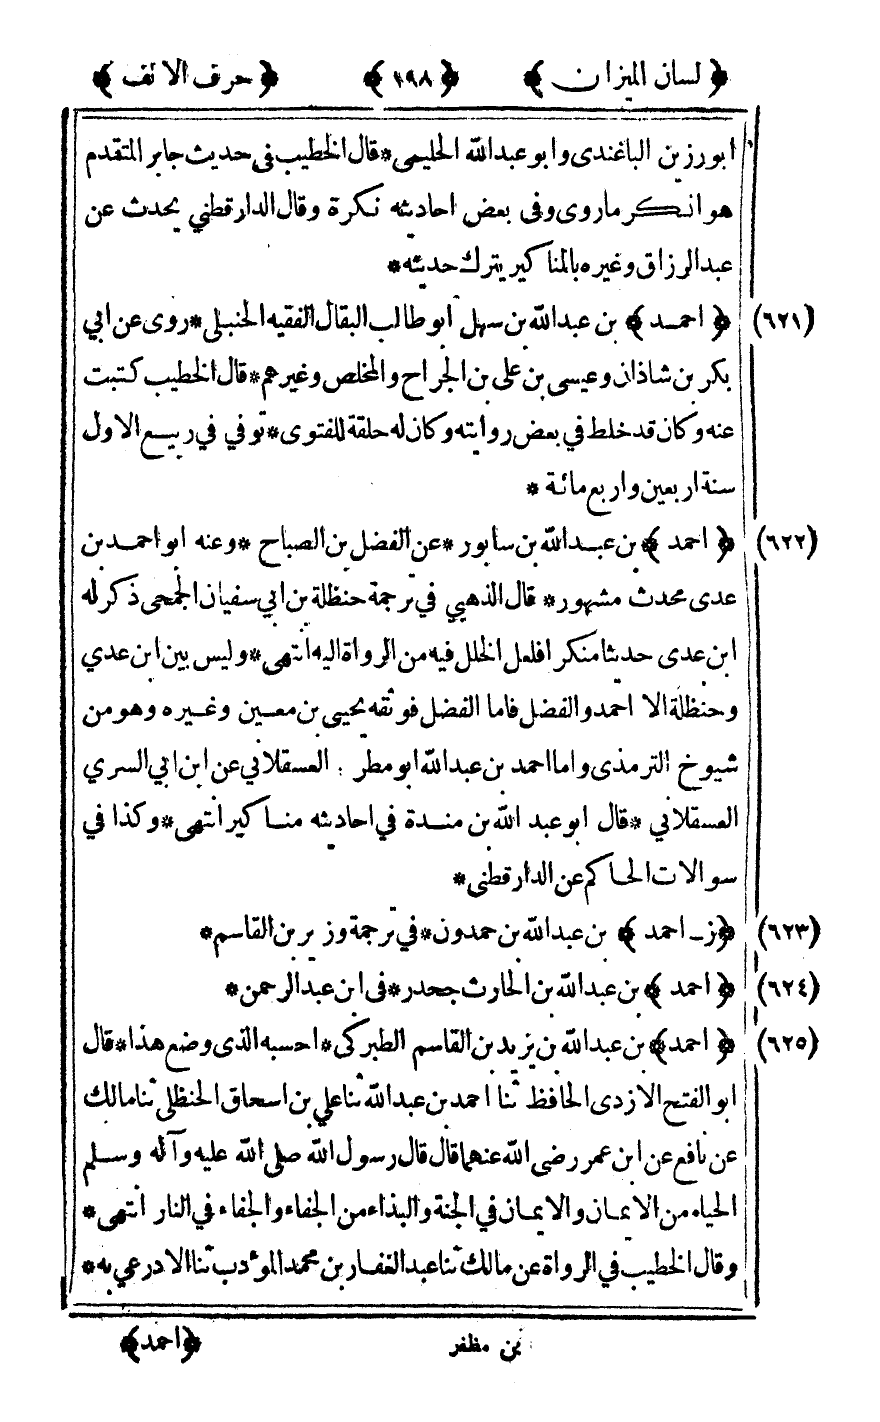 ﴿ لسان الميزان ﴾ ﴿ ١٩٨ ﴾ ﴿ حرف الالف ﴾
ابورزين الباغندى وابو عبدالله الحليمى*قال الخطيب فى حديث جابر المتقدم
هو انكر ماروى وفى بعض احاديثه نكرة وقال الدارقطني يحدث عن
عبدالرزاق وغيره بالمناكير يترك حديثه*
(٦٢١) ﴿ احمد ﴾ بن عبدالله بن سهل ابو طالب البقال الفقيه الحنبلى*روى عن ابي
بكر بن شاذان وعيسى بن على بن الجراح والمخلص وغيرهم*قال الخطيب كتبت
عنه وكان قد خلط في بعض روايته وكان له حلقة للفتوى*توفي في ربيع الاول
سنة اربعين واربع مائة *
(٦٢٢) ﴿ احمد ﴾ بن عبدالله بن سابور *عن الفضل بن الصباح *وعنه ابو احمد بن
عدى محدث مشهور* قال الذهبي في ترجمة حنظلة بن ابي سفيان الجمحى ذكر له
ابن عدى حديثا منكرا فلعل الخلل فيه من الرواة اليه انتهى*وليس بين ابن عدي
وحنظلة الا احمد والفضل فاما الفضل فوثقه يحيى بن معين وغيره وهو من
شيوخ الترمذى واما احمد بن عبدالله ابو مطر . العسقلاني عن ابن ابي السري
العسقلاني *قال ابو عبد الله بن مندة في احاديثه مناكير انتهى*وكذا في
سوالات الحاكم عن الدارقطنى*
(٦٢٣) ﴿ز- احمد ﴾ بن عبدالله بن حمدون*في ترجمة وزير بن القاسم*
(٦٢٤) ﴿ احمد ﴾ بن عبدالله بن الحارث جحدر*فى ابن عبدالرحمن*
(٦٢٥) ﴿ احمد ﴾ بن عبدالله بن يزيد بن القاسم الطبركى*احسبه الذى وضع هذا*قال
ابو الفتح الازدى الحافظ ثنا احمد بن عبدالله ثنا علي بن اسحاق الحنظلى ثنا مالك
عن نافع عن ابن عمر رضى الله عنهما قال قال رسول الله صلى الله عليه وآله وسلم
الحياء من الايمان والايمان في الجنة والبذاء من الجفاء والجفاء في النار انتهى*
وقال الخطيب في الرواة عن مالك ثنا عبدالغفار بن محمد المؤدب ثنا الادرعي به*
بن مظفر ﴿احمد﴾